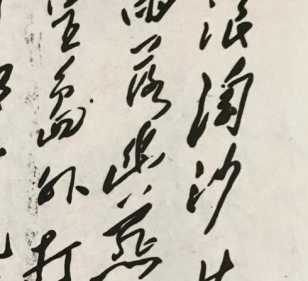 浪淘沙
雨落幽燕
皇島外打